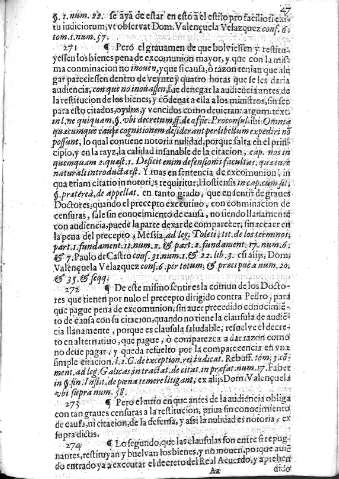 27
§. 1. num. 22. se aya de estar en esto à el estilo pro facilioris cau
tu iudiciorum, vt observat Dom. Valençuela Velazquez conf. 6.
tom. 1. num. 57.
271 ¶ Pero el gravamen de que bolviessen y restitu
yessen los bienes pena de excomunion mayor, y que con la mis
ma conminacion no inoven, y que si causa, ò razon tenian que ale
gar pareciessen dentro de veynte y quatro horas que se les daria
audiencia, con que no inovassen, fue denegar la audiencia antes de
la restitucion de los bienes, y condenar à ella à los ministros, sin ser
para esto citados, oydos, y vencidos como devieran: argum. text.
in l. ne quiquam, §. vbi decretum ff. de offic. Proconsulis ibi: Omnia
quæcumque causæ cognitionem desiderant per libellum expediri nō
possunt, lo qual contiene notoria nulidad, porque falta en el princi-
pio, y en la rayz, la calidad insanable de la citacion, cap. nos in
quemquam 2. quæst. 1. Deficit enim defensionis facultas, quæ iure
naturali introducta est. Y mas en sentencia de excomunion, in
qua etiam citatio in notorijs requiritur, in cap. cum sit,
§. præterea, de appellat. en tanto grado, que enseñan graves
Doctores, quando el precepto executivo, con conminacion de
censuras, sale sin conocimiento de causa, no siendo llanamente
con audiencia, puede la parte dexar de comparecer, sin incurrir en
la pena del precepto; Messia, ad leg. Toleti, tit. de los terminos,
part. 1. fundament. 11. num. 2. & part. 2. fundament. 17. num. 6.
& 7. Paulo de Castro conf. 31. num. 1. & 22. lib. 3. cū alijs, Dom.
Valençuela Velazquez conf. 6. per totum, & præcipuè num. 20.
& 35. & seqq.
272 ¶ De este mismo sentir es la comun de los Docto-
res que tienen por nulo el precepto dirigido contra Pedro, para
que pague pena de excomunion, sin aver precedido conocimien-
to de causa con su citacion, quando no tiene la clausula de audiē
cia llanamente, porque es clausula saludable, resuelve el decre-
to en alternativo, que pague, ò comparezca à dar razon como
no deve pagar, y queda resuelto por la comparecencia en vna
simple citacion. Rebuff. tom. 3. cō
ment. ad leg. Galicas, in tractat. de citat. in præfat. num. 17. Faber
in §. fin. Instit. de pœna temere litigant, ex alijs Dom. Valençuela
vbi supra num. 58.
273 ¶ Pero el auto en que antes de la audiencia obliga
con tan graves censuras à la restitucion, priva sin conocimiento
de causa, ni citacion, de la defensa, y assi la nulidad es notoria, ex
supradictis.
274 ¶ Lo segundo, que las clausulas son entre si repug-
nantes, restituyan y buelvan los bienes, y no inoven, porque avien
do entrado ya à executar el decreto del Real Acuerdo, y aprehen
Aa
dido